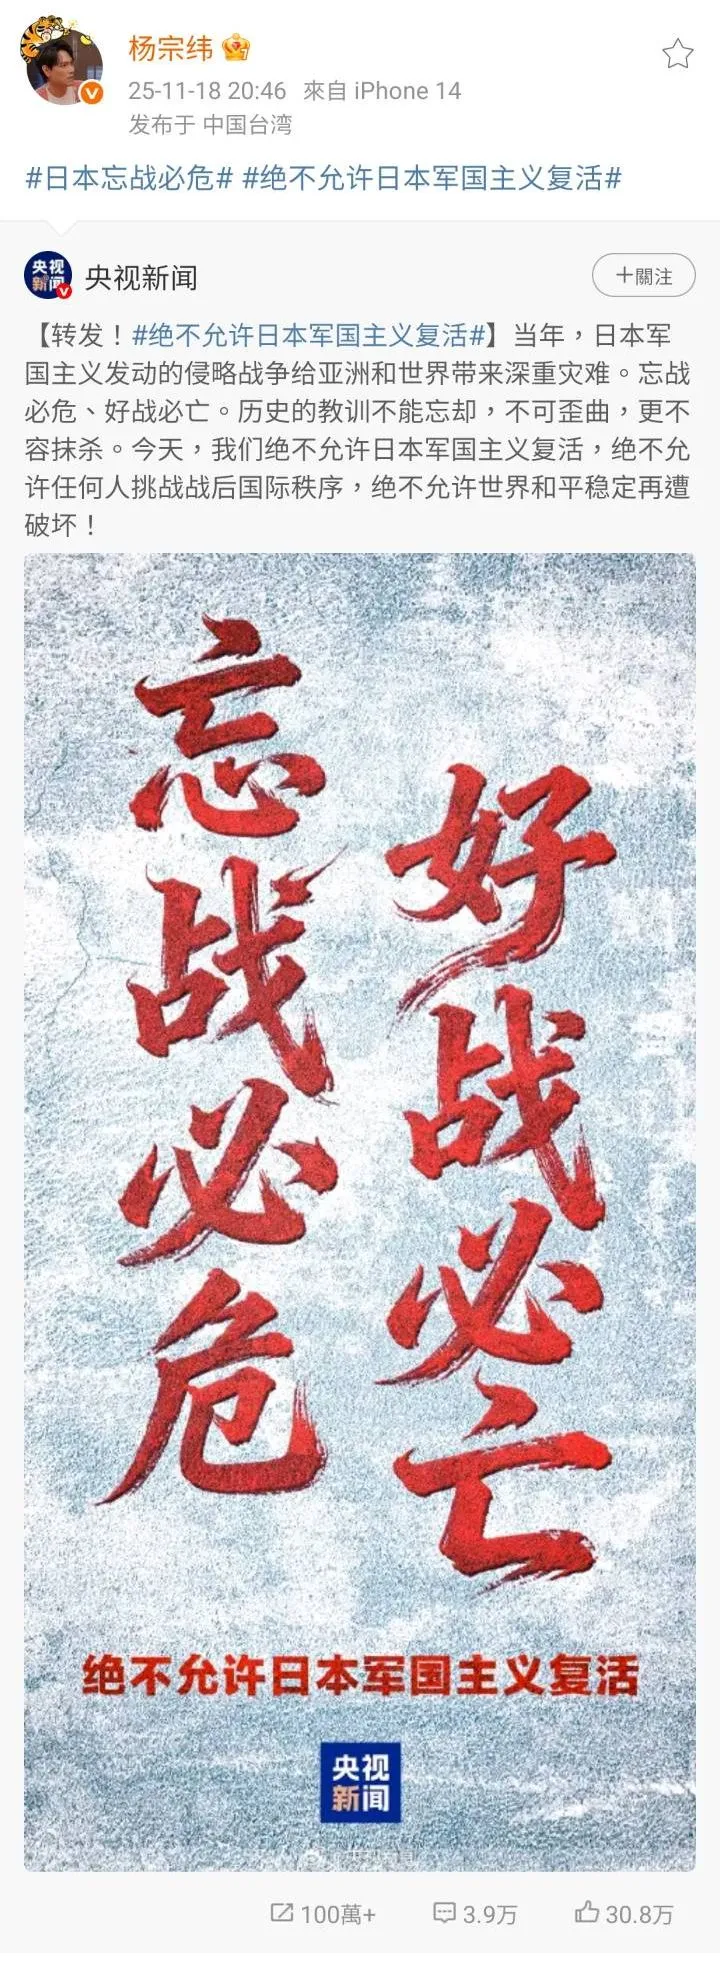 杨宗纬
25-11-18 20:46 來自 iPhone 14
发布于 中国台湾
#日本忘战必危# #绝不允许日本军国主义复活#
央视
新闻
央视新闻
+關注
【转发！#绝不允许日本军国主义复活#】当年，日本军
国主义发动的侵略战争给亚洲和世界带来深重灾难。忘战
必危、好战必亡。历史的教训不能忘却，不可歪曲，更不
容抹杀。今天，我们绝不允许日本军国主义复活，绝不允
许任何人挑战战后国际秩序，绝不允许世界和平稳定再遭
破坏！
忘战必危
好战必亡
绝不允许日本军国主义复活
央视
新闻
100萬+
3.9万
30.8万